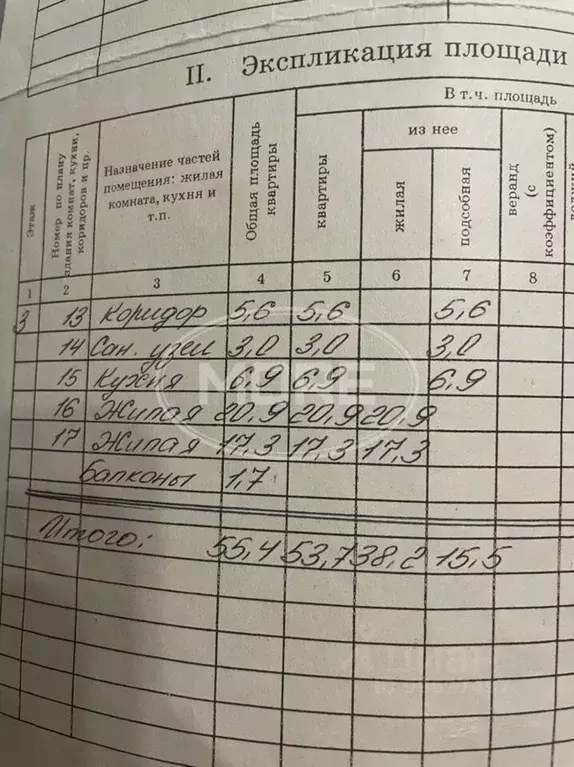 II. Экспликация площади
Этаж
Номер по плану здания комнат, кухни, коридоров и пр.
Назначение частей помещения: жилая комната, кухня и т.п.
Общая площадь квартиры
В т.ч. площадь
квартиры
из нее
жилая
подсобная
веранд (с коэффициентом)
1 2 3 4 5 6 7 8
3 13 Коридор 5,6 5,6 5,6
14 Сан. узел 3,0 3,0 3,0
15 Кухня 6,9 6,9 6,9
16 Жилая 20,9 20,9 20,9
17 Жилая 17,3 17,3 17,3
Балконы 1,7
Итого: 55,4 53,7 38,2 15,5